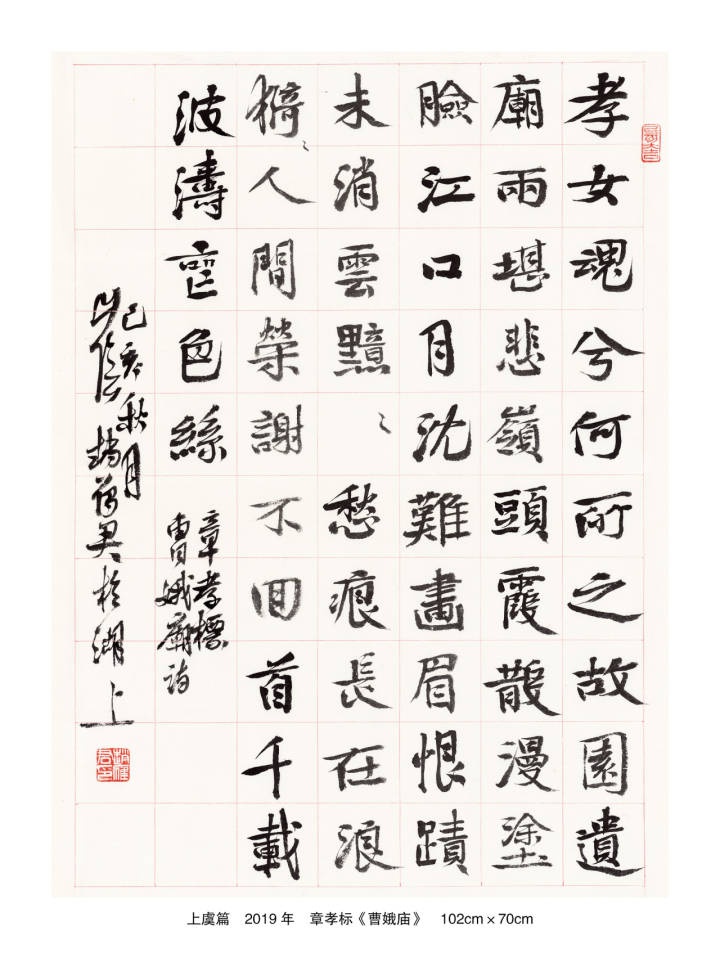 孝女魂兮何所之故園遺
廟兩堪悲嶺頭霞散漫塗
臉江口月沈難畫眉恨蹟
未消雲黯〻愁痕長在浪
漪〻人間榮謝不回首千載
波濤色絲
章孝標
曹娥廟詩
己亥秋月
山陰趙雁君於湖上
上虞篇 2019 年 章孝标《曹娥庙》 102cm × 70cm